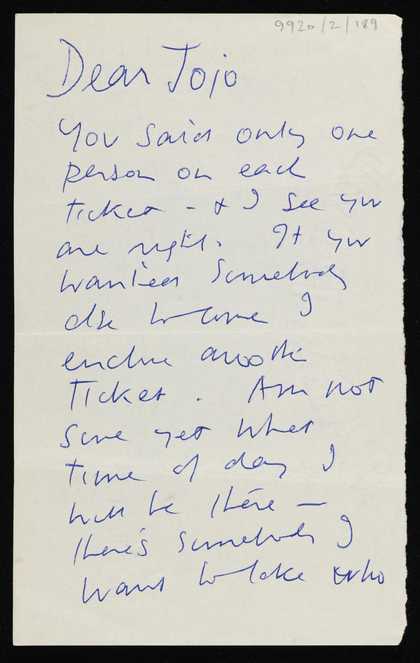 9920/2/189
Dear Jojo
You said only one
person on each
ticket - & I see you
are right. If you
wanted somebody
else to come I
enclose another
Ticket. Am not
sure yet what
time of day I
will be there -
there's somebody I
want to take who